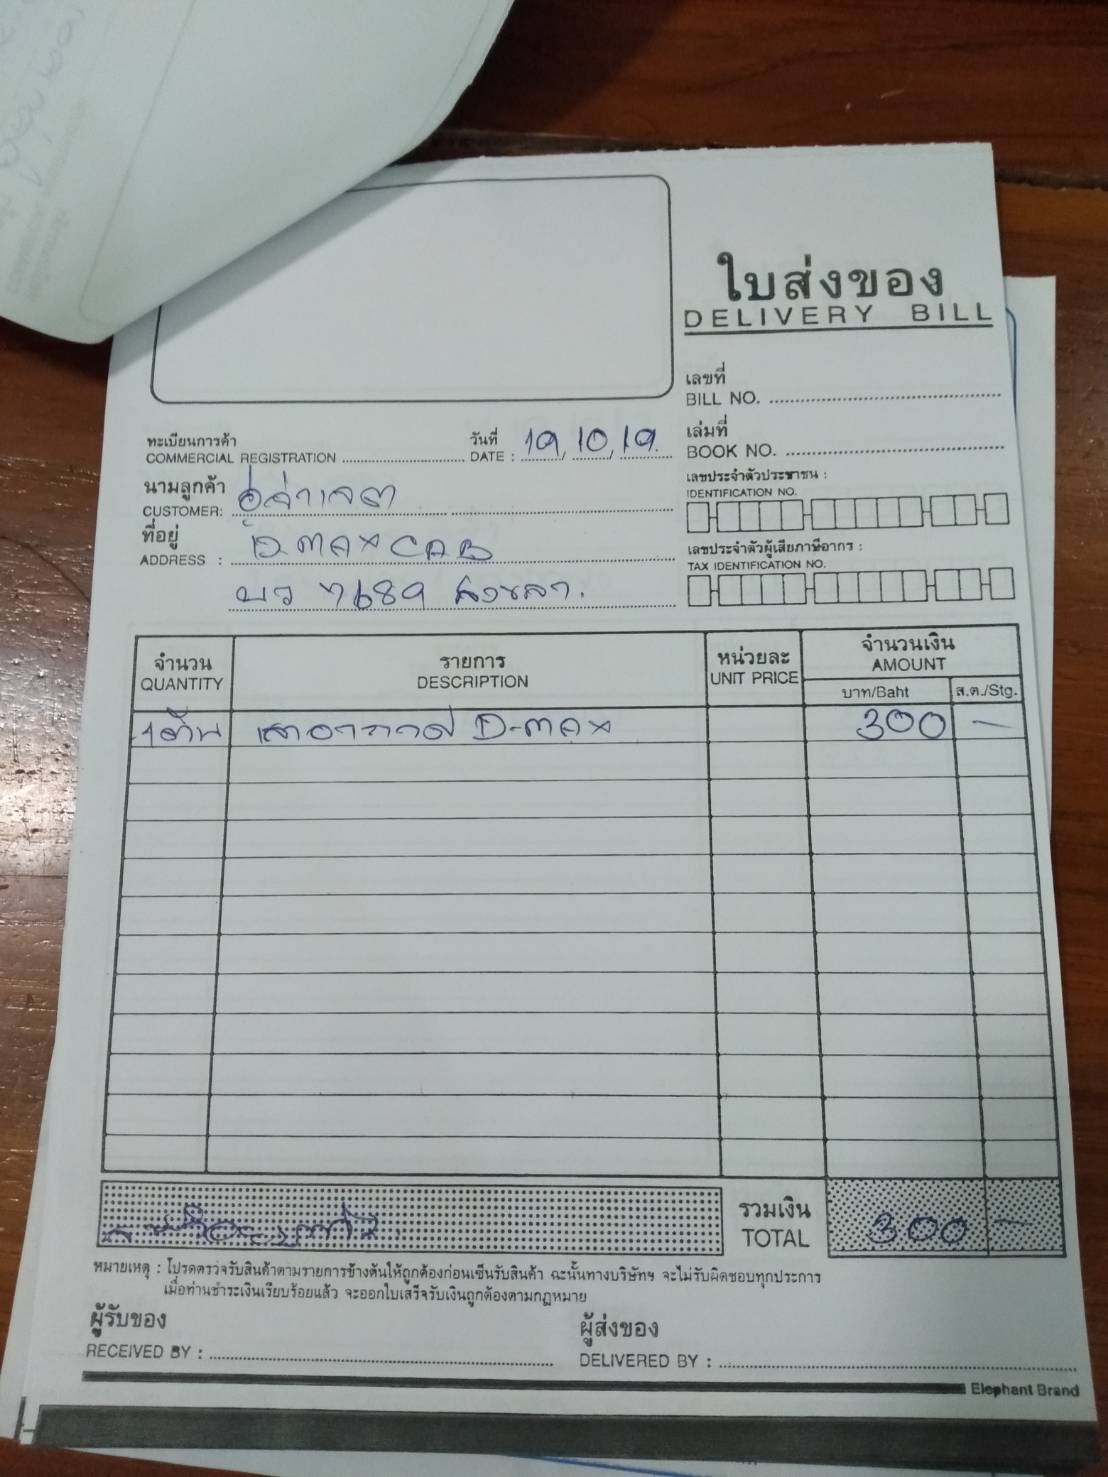 ใบส่งของ
DELIVERY BILL
เลขที่
BILL NO.
ทะเบียนการค้า
COMMERCIAL REGISTRATION
วันที่
DATE : 19, 10, 19.
เล่มที่
BOOK NO.
นามลูกค้า
CUSTOMER:
เลขประจำตัวประชาชน :
IDENTIFICATION NO.
ที่อยู่
ADDRESS : D-MAX CAB
เลขประจำตัวผู้เสียภาษีอากร :
TAX IDENTIFICATION NO.
บว 7689 สงขลา.
จำนวน รายการ หน่วยละ จำนวนเงิน
QUANTITY DESCRIPTION UNIT PRICE AMOUNT
บาท/Baht ส.ต./Stg.
1 ต้น เสาอากาศ D-MAX 300 -
รวมเงิน
TOTAL 300 -
หมายเหตุ : โปรดตรวจรับสินค้าตามรายการข้างต้นให้ถูกต้องก่อนเซ็นรับสินค้า ฉะนั้นทางบริษัทฯ จะไม่รับผิดชอบทุกประการ
เมื่อท่านชำระเงินเรียบร้อยแล้ว จะออกใบเสร็จรับเงินถูกต้องตามกฎหมาย
ผู้รับของ ผู้ส่งของ
RECEIVED BY : DELIVERED BY :
Elephant Brand